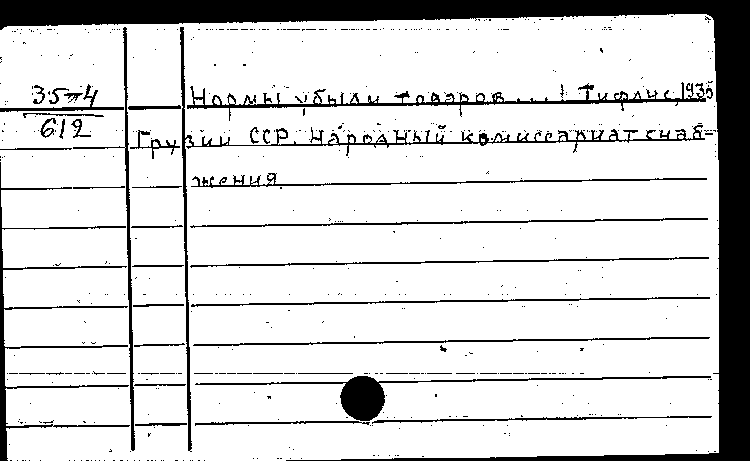 35-4
612
Нормы убыли товаров ... | Тифлис, 1935
Грузии ССР. Народный комиссариат снаб-
жения.